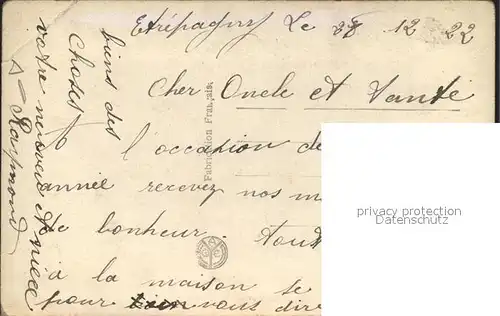 Etrépagny Le 28 12 22
Cher Oncle et tante
l'occasion de
année recevez nos m
de bonheur. tout
à la maison se
pour vous dire
biens des
choses
votre neveux et niece
Raymond
Fabrication Française
privacy protection